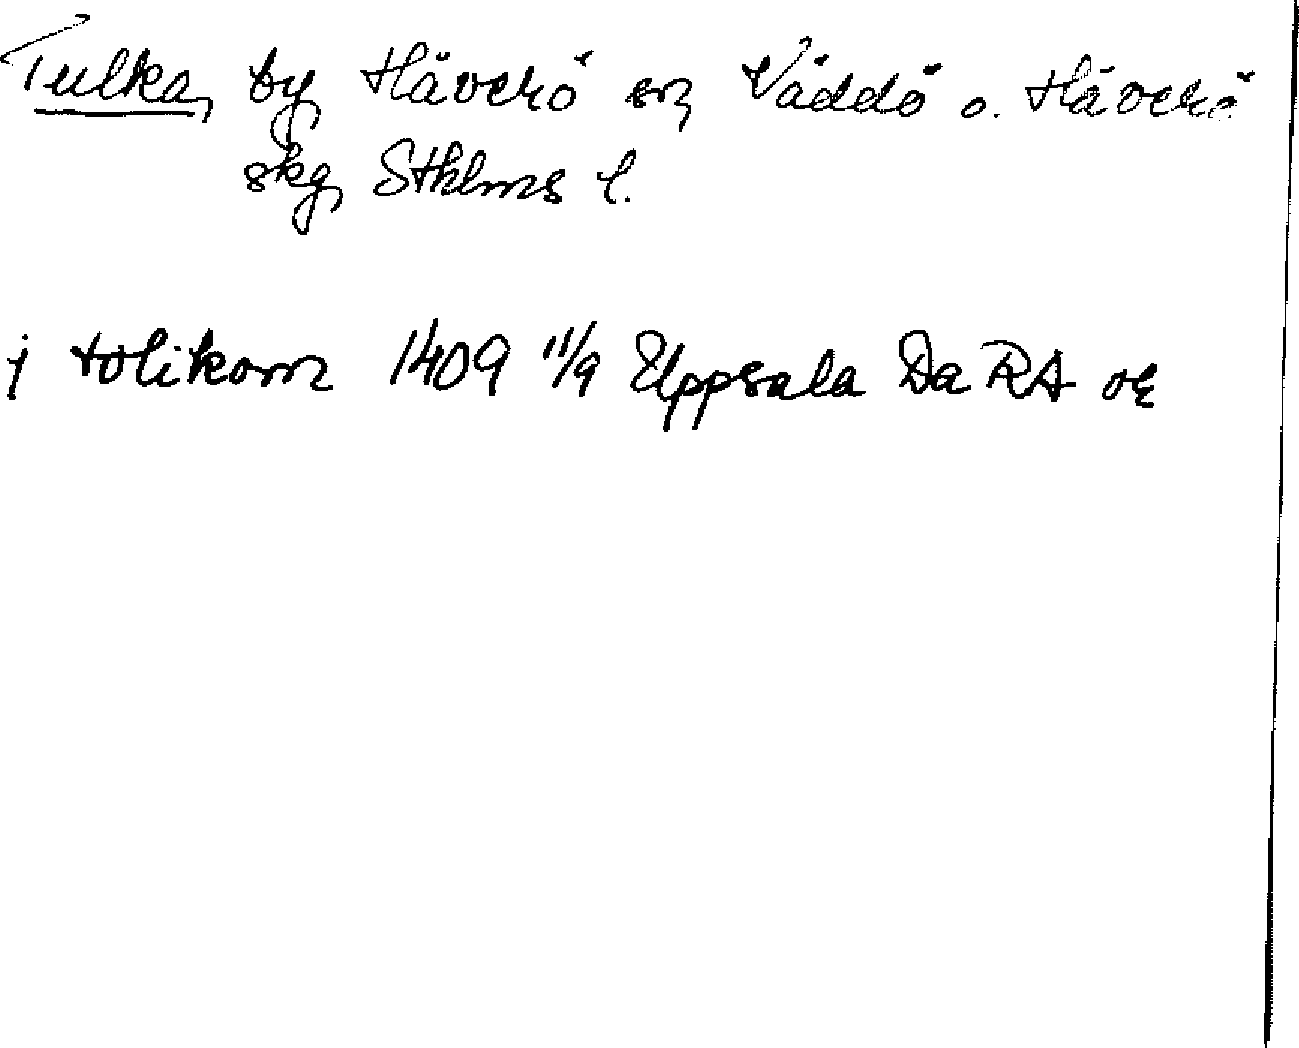 Tulka, by Häverö sn, Väddö o. Häverö
skg, Sthlms l.
j tolikom 1409 11/9 Uppsala Da RA or